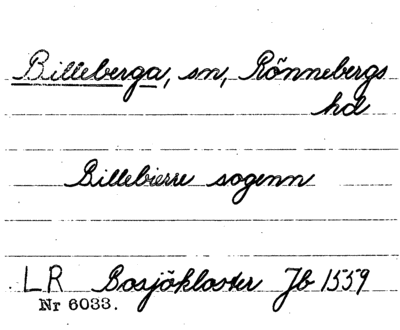 Billeberga, sn, Rönnebergs
hd
Billebierre sogenn
LR Bosjökloster Jb 1559
Nr 6033.